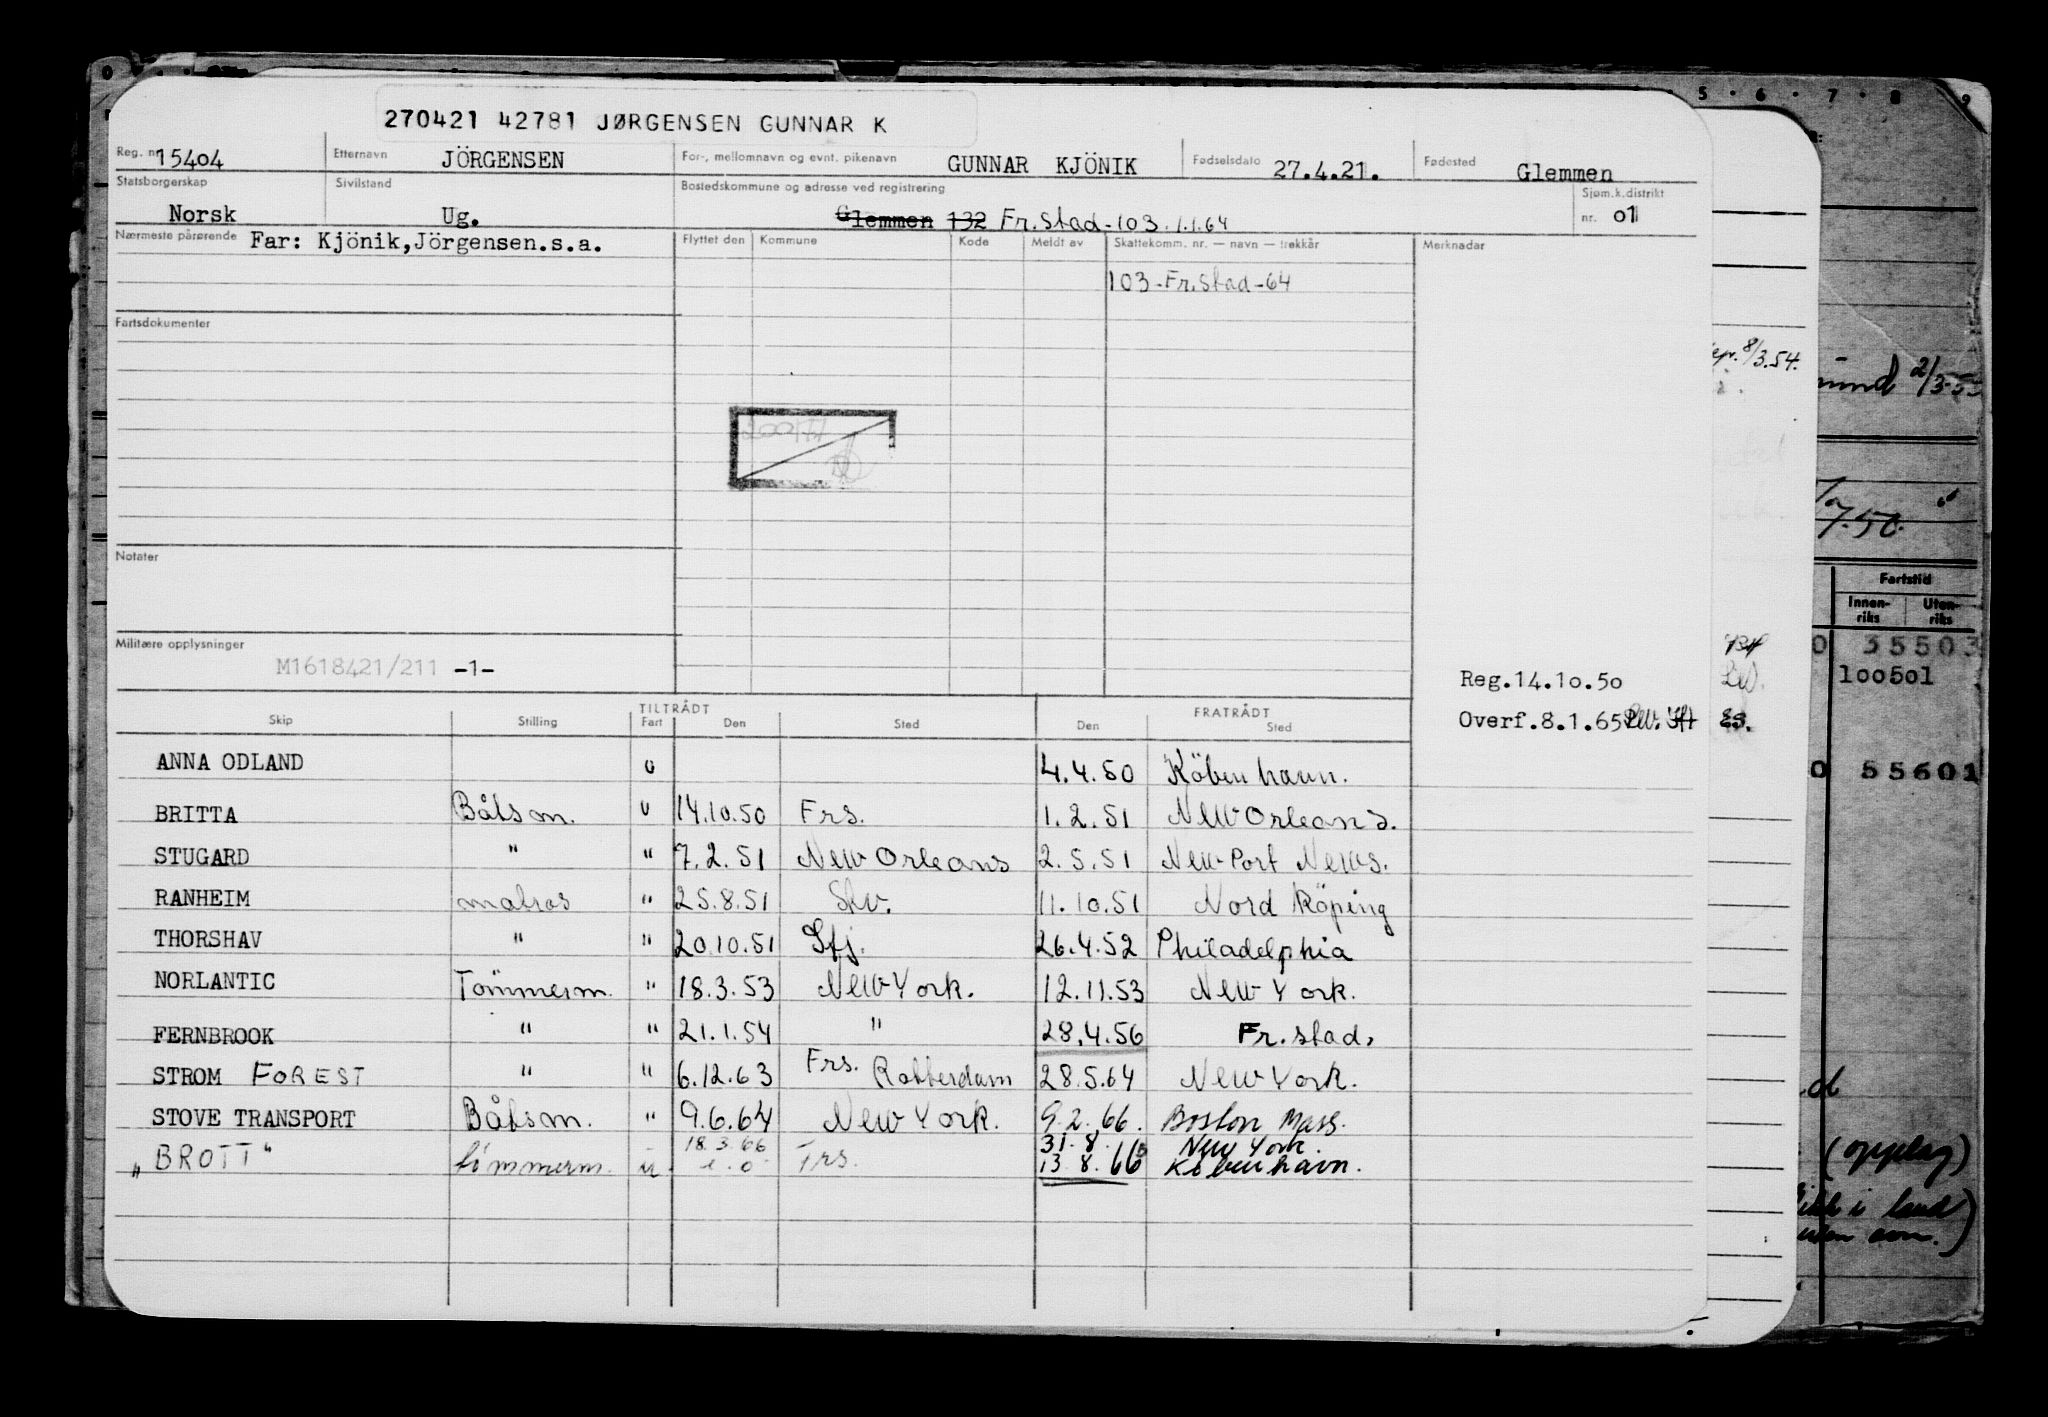 270421 42781 JØRGENSEN GUNNAR K
Reg. nr. 15404 Etternavn JÖRGENSEN For-, mellomnavn og evnt. pikenavn GUNNAR KJÖNIK Fødselsdato 27.4.21. Fødested Glemmen
Statsborgerskap Norsk Sivilstand Ug. Bostedskommune og adresse ved registrering Glemmen 132 Fr.stad-103. 1.1.64 Sjøm.k.distrikt nr. 01
Nærmeste pårørende Far: Kjönik,Jörgensen.s.a. Flyttet den Kommune Kode Meldt av Skattekomm. nr. — navn — trekkår Merknader
103-Fr.stad-64
Fartsdokumenter
Notater
Militære opplysninger
M1618421/211 -1-
Reg.14.10.50
Overf.8.1.65
TILTRÅDT FRATRÅDT
Skip Stilling Fart Den Sted Den Sted
ANNA ODLAND U 4.4.50 Köbenhavn.
BRITTA Båtsm. U 14.10.50 Frs. 1.2.51 New Orleans.
STUGARD " " 7.2.51 New Orleans 2.5.51 New Port News.
RANHEIM matros " 25.8.51 Slv. 11.10.51 Nord Köping
THORSHAV " " 20.10.51 Sfj. 26.4.52 Philadelphia
NORLANTIC Tömmerm. " 18.3.53 New York. 12.11.53 New York.
FERNBROOK " " 21.1.54 " 28.4.56 Fr.stad.
STROM FOREST " " 6.12.63 Frs. Rotterdam 28.5.64 New York.
STOVE TRANSPORT Båtsm. " 9.6.64 New York. 9.2.66. Boston Mass.
"BROTT" tömmerm. u 18.3.66 Frs. 31.8. New York
13.8.66 København.
8/3.54.
2/3-5
7.50.
Fartstid
Innen-riks Uten-riks
0 35503
100501
0 55601
(opplag)
i land